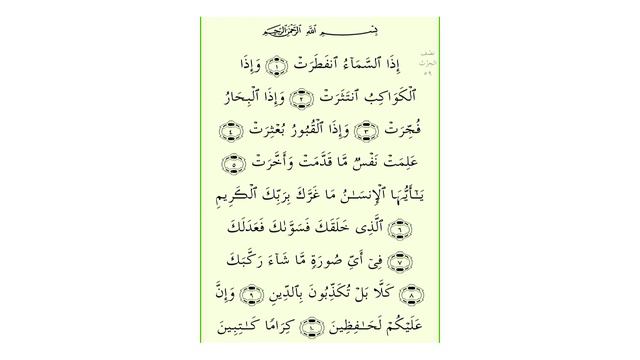 بِسْمِ اللَّهِ الرَّحْمَٰنِ الرَّحِيمِ
إِذَا ٱلسَّمَآءُ ٱنفَطَرَتْ ١ وَإِذَا
ٱلْكَوَاكِبُ ٱنتَثَرَتْ ٢ وَإِذَا ٱلْبِحَارُ
فُجِّرَتْ ٣ وَإِذَا ٱلْقُبُورُ بُعْثِرَتْ ٤
عَلِمَتْ نَفْسٌ مَّا قَدَّمَتْ وَأَخَّرَتْ ٥
يَـٰٓأَيُّهَا ٱلْإِنسَـٰنُ مَا غَرَّكَ بِرَبِّكَ ٱلْكَرِيمِ
٦ ٱلَّذِى خَلَقَكَ فَسَوَّىٰكَ فَعَدَلَكَ
٧ فِىٓ أَىِّ صُورَةٍ مَّا شَآءَ رَكَّبَكَ
٨ كَلَّا بَلْ تُكَذِّبُونَ بِٱلدِّينِ ٩ وَإِنَّ
عَلَيْكُمْ لَحَـٰفِظِينَ ١٠ كِرَامًا كَـٰتِبِينَ
نصف
الحزب
٥٩